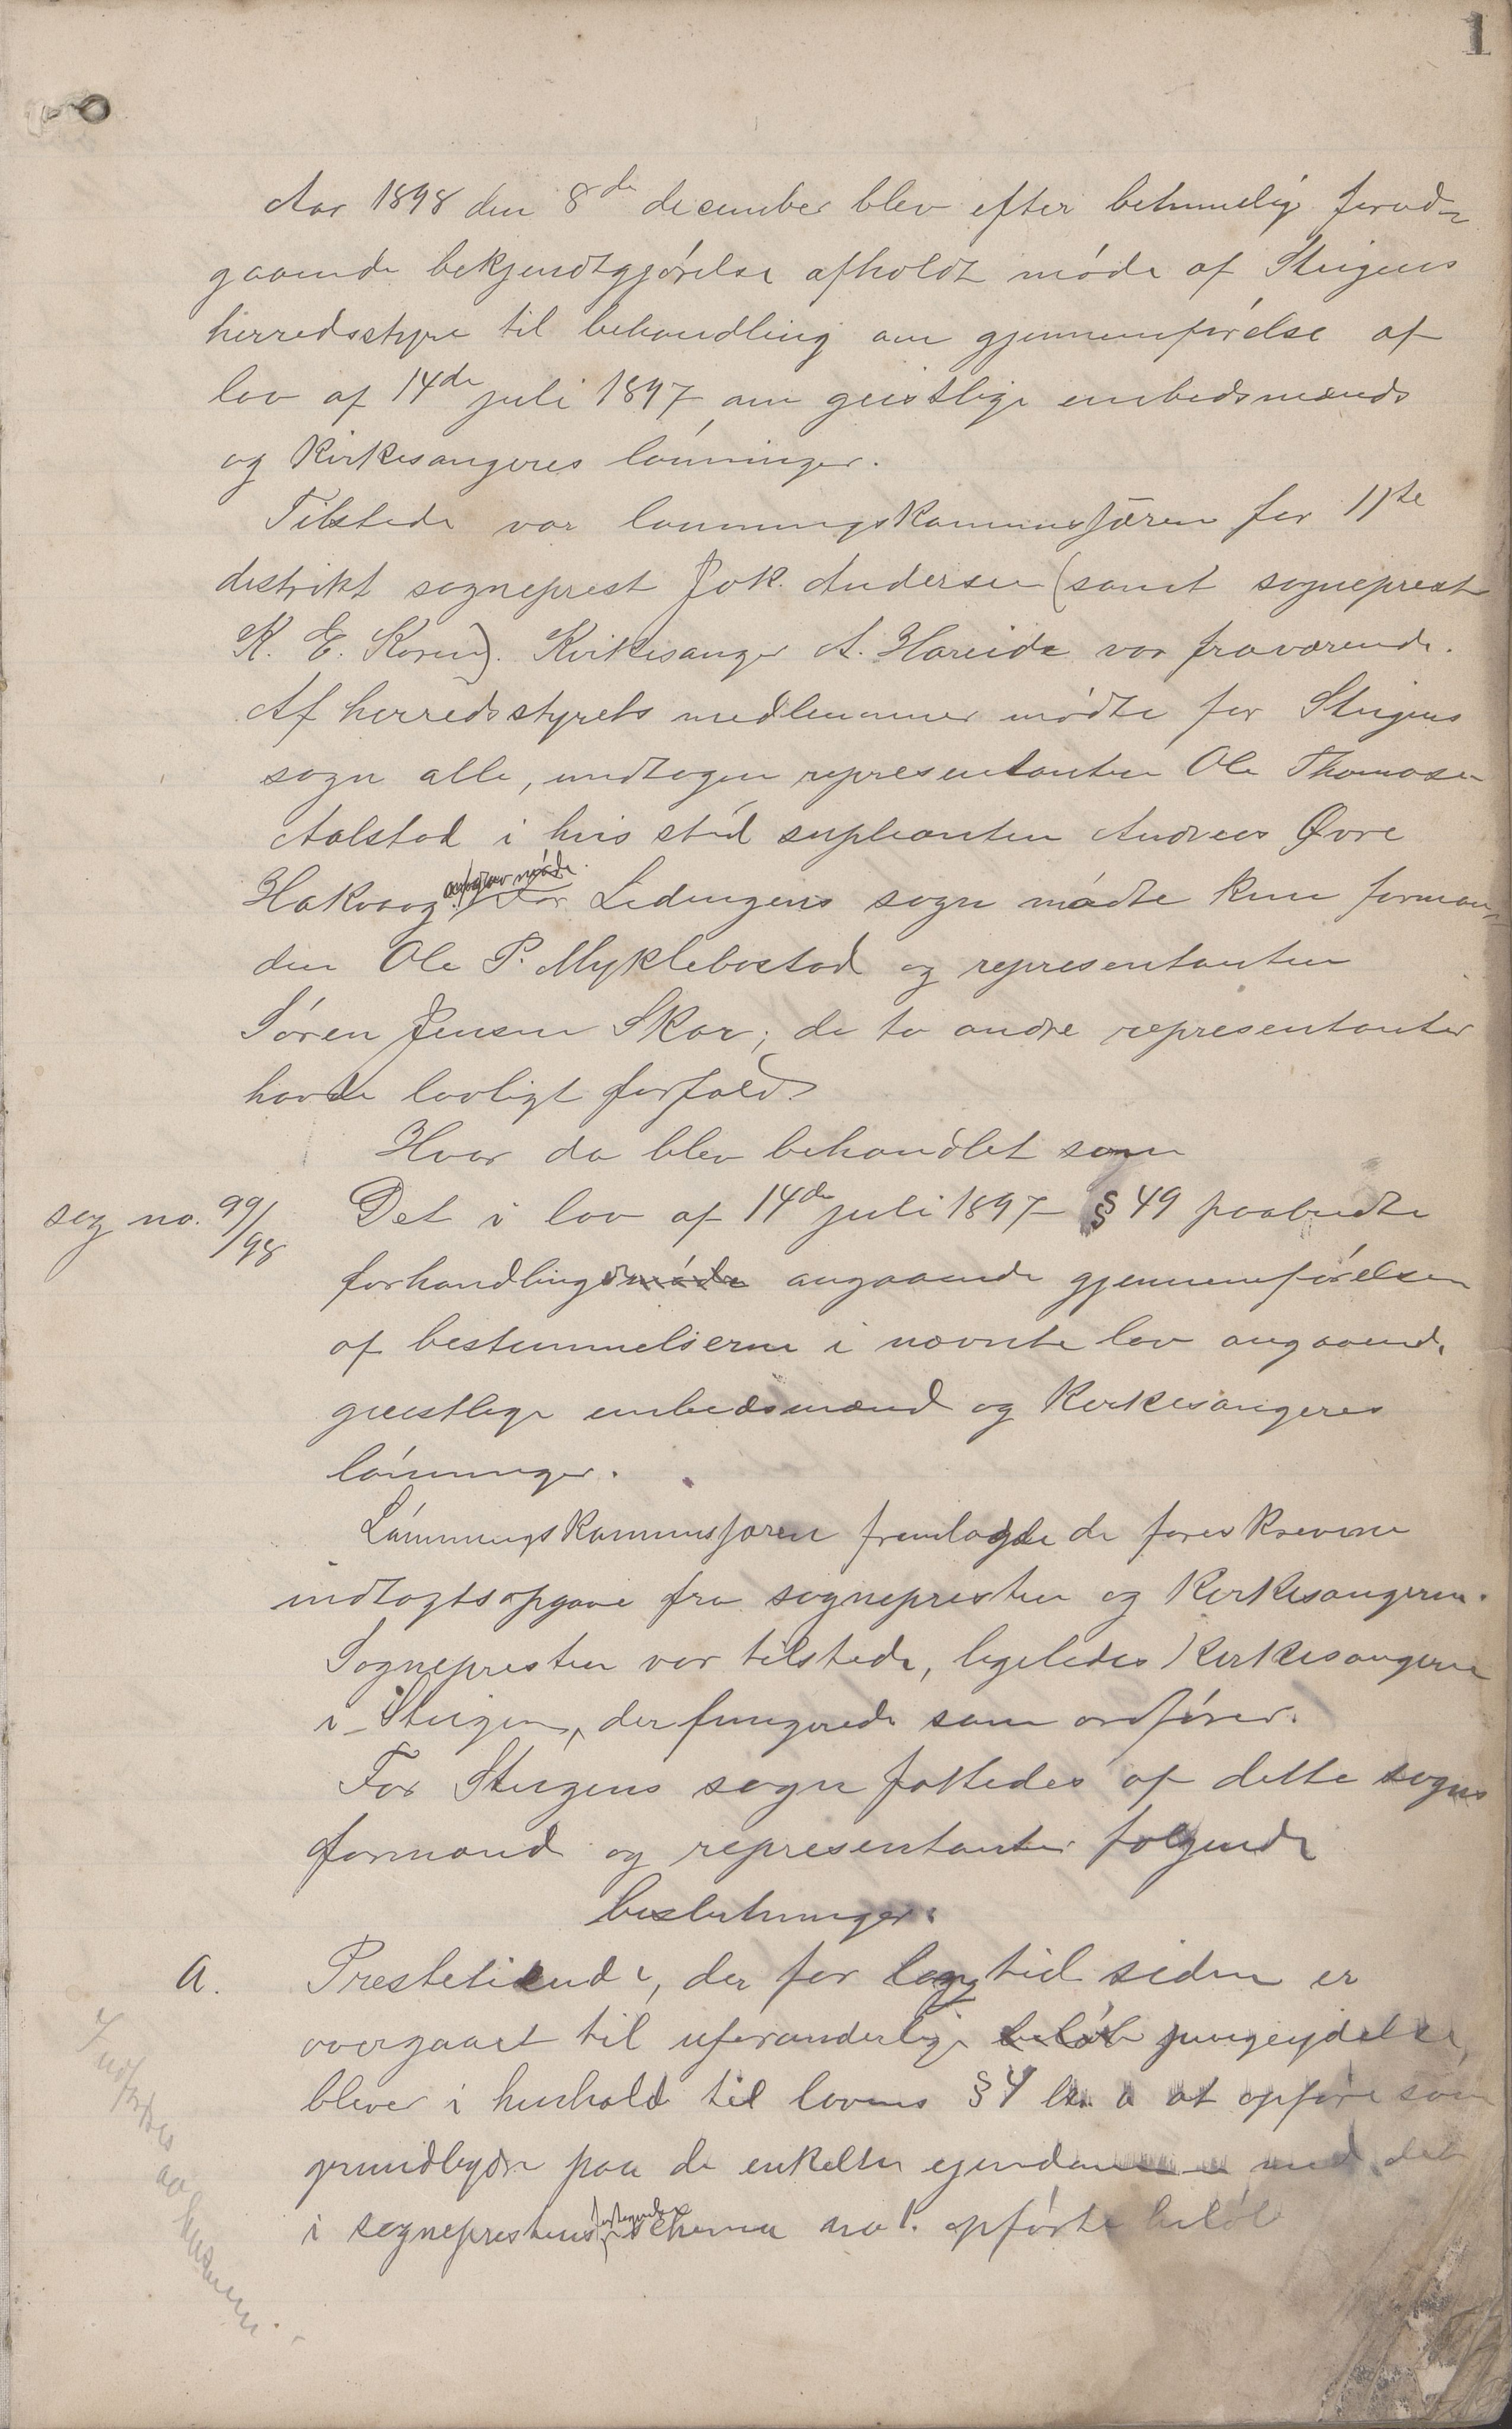 1
Aar 1898 den 8de december blev efter betimelig forud-
gaaende bekjendtgjørelse afholdt møde af Steigens
herredsstyre til behandling om gjennemførelse af
lov af 14de juli 1897 om geistlige embedsmænds
og kirkesangeres lønninger.
Tilstede var lønningskommissæren for 11te
distrikt sogneprest Jok. Andersen (samt sogneprest
K. E. Koren). Kirkesanger A. Hareide var fraværende.
Af herredsstyrets medlemmer mødte for Steigens
sogn alle, undtagen representanten Ole Thomasen
Aalstad i hvis stéd supleanten Andreas Øvre
Hakvaag møde. For Ledingens sogn mødte kun forman-
den Ole P. Myklebostad og representanten
Søren Jensen Skar; de to andre representanter
havde lovligt forfald.
Hvor da blev behandlet som
sag no. 99/98
Det i lov af 14de juli 1897 § 49 paabudte
forhandlingsmøde angaaende gjennemførelsen
af bestemmelserne i nævnte lov angaaende
geistlige embedsmænd og kirkesangeres
lønninger.
Lønningskommissæren fremlagde de foreskrevne
indtægtsopgave fra sognepresten og kirkesangeren.
Sognepresten var tilstede, ligeledes kirkesangeren
i Steigen, der fungerede som ordfører.
For Steigens sogn fattedes af dette sogns
formænd og representanter følgende
beslutninger:
A.
Prestetiende, der for lang tid siden er
overgaaet til uforanderlige beløb pengeydelse,
bliver i henhold til lovens § 4 litr. a at opføre som
grundbyrde paa de enkelte eiendomme med det
i sogneprestens schema no 1. opførte beløb